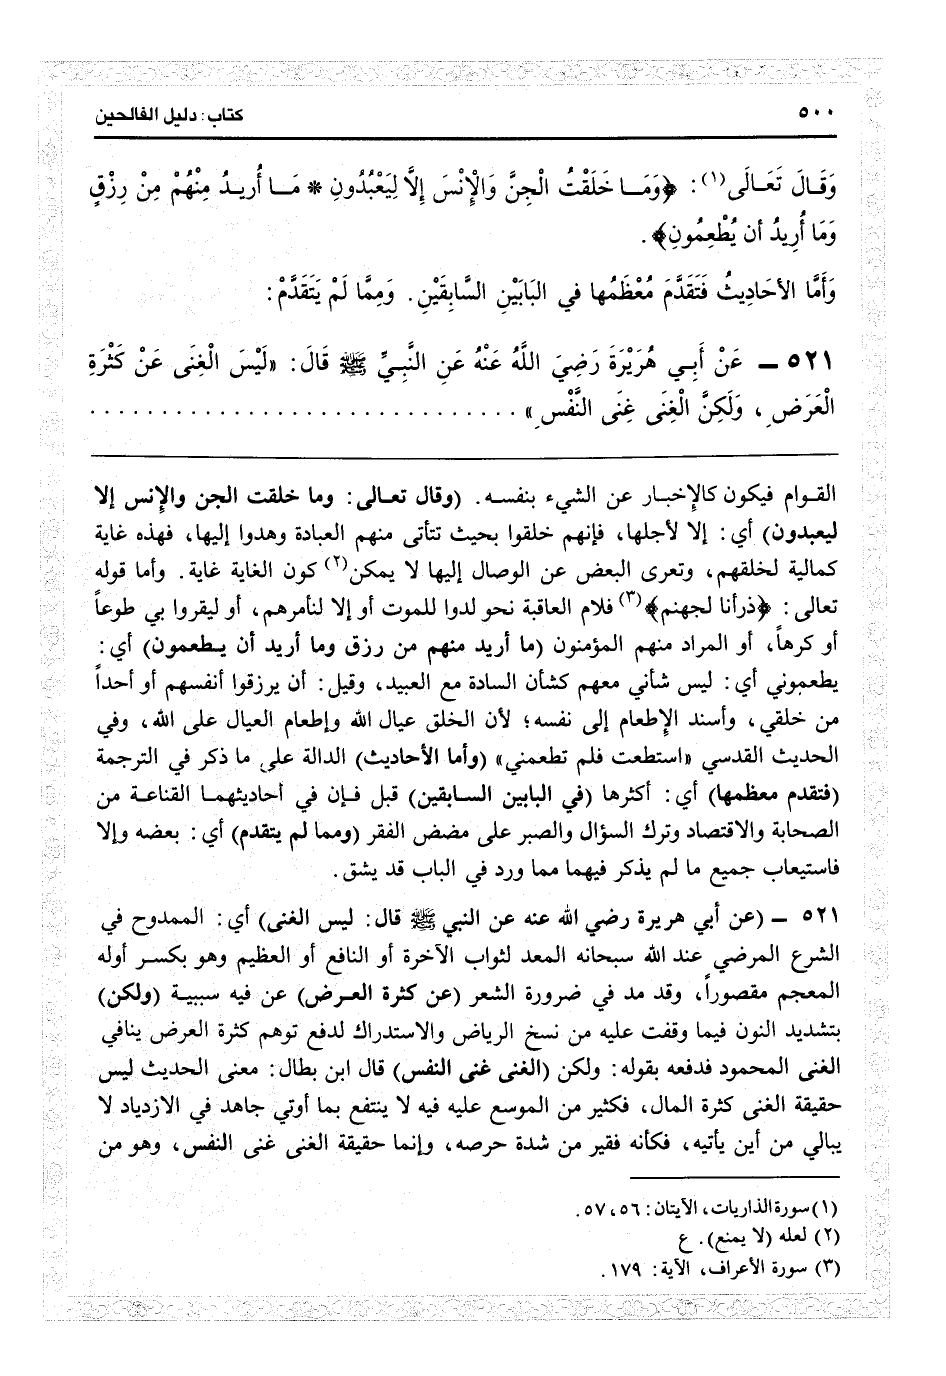 ٥٠٠ كتاب: دليل الفالحين
وَقَالَ تَعَالَى(١): ﴿وَمَـا خَلَقْتُ الْجِنَّ وَالْإِنْسَ إِلَّا لِيَعْبُدُونِ * مَـا أُرِيـدُ مِنْهُمْ مِنْ رِزْقٍ
وَمَا أُرِيدُ أن يُطْعِمُونِ﴾.
وَأَمَّا الأحَادِيثُ فَتَقَدَّمَ مُعْظَمُها في البَابَيْنِ السَّابِقَيْنِ. وَمِمَّا لَمْ يَتَقَدَّمْ:
٥٢١ ـ عَنْ أَبِـي هُرَيْرَةَ رَضِيَ اللَّهُ عَنْهُ عَنِ النَّبِيِّ ﷺ قَالَ: «لَيْسَ الْغِنَى عَنْ كَثْرَةِ
الْعَرَضِ، وَلَكِنَّ الْغِنَى غِنَى النَّفْسِ» ..............................
القـوام فيكون كالإخبـار عن الشيء بنفسـه. (وقال تعـالى: وما خلقت الجن والإنس إلا
ليعبدون) أي: إلا لأجلها، فإنهم خلقوا بحيث تتأتى منهم العبادة وهدوا إليها، فهذه غاية
كمالية لخلقهم، وتعرى البعض عن الوصال إليها لا يمكن(٢) كون الغاية غاية. وأما قوله
تعالى: ﴿ذرأنا لجهنم﴾(٣) فلام العاقبة نحو لدوا للموت أو إلا لنأمرهم، أو ليقروا بي طوعاً
أو كرهاً، أو المراد منهم المؤمنون (ما أريد منهم من رزق وما أريد أن يـطعمون) أي:
يطعموني أي: ليس شأني معهم كشأن السادة مع العبيد، وقيل: أن يرزقوا أنفسهم أو أحداً
من خلقي، وأسند الإطعام إلى نفسه؛ لأن الخلق عيال الله وإطعام العيال على الله، وفي
الحديث القدسي «استطعت فلم تطعمني» (وأما الأحاديث) الدالة على ما ذكر في الترجمة
(فتقدم معظمها) أي: أكثرها (في البابين السـابقين) قبل فـإن في أحاديثهمـا القناعـة من
الصحابة والاقتصاد وترك السؤال والصبر على مضض الفقر (ومما لم يتقدم) أي: بعضه وإلا
فاستيعاب جميع ما لم يذكر فيهما مما ورد في الباب قد يشق.
٥٢١ ـ (عن أبي هريرة رضي الله عنه عن النبي ﷺ قال: ليس الغنى) أي: الممدوح في
الشرع المرضي عند الله سبحانه المعد لثواب الآخرة أو النافع أو العظيم وهو بكسـر أوله
المعجم مقصوراً، وقد مد في ضرورة الشعر (عن كثرة العـرض) عن فيه سببيـة (ولكن)
بتشديد النون فيما وقفت عليه من نسخ الرياض والاستدراك لدفع توهم كثرة العرض ينافي
الغنى المحمود فدفعه بقوله: ولكن (الغنى غنى النفس) قال ابن بطال: معنى الحديث ليس
حقيقة الغنى كثرة المال، فكثير من الموسع عليه فيه لا ينتفع بما أوتي جاهد في الازدياد لا
يبالي من أين يأتيه، فكأنه فقير من شدة حرصه، وإنما حقيقة الغنى غنى النفس، وهو من
(١) سورة الذاريات، الآيتان: ٥٦، ٥٧.
(٢) لعله (لا يمنع). ع
(٣) سورة الأعراف، الآية: ١٧٩.